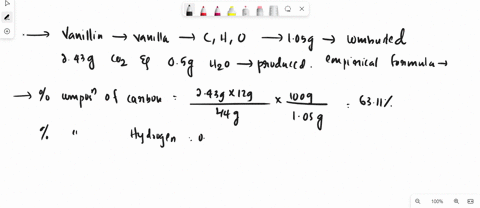 → Vanillin → vanilla → C, H, O → 1.05g → combusted
2.43g CO2 & 0.5g H2O → produced. empirical formula →
→ % compon of carbon = 2.43g × 12g / 44g × 100g / 1.05g = 63.11%
% " Hydrogen : 0
100%